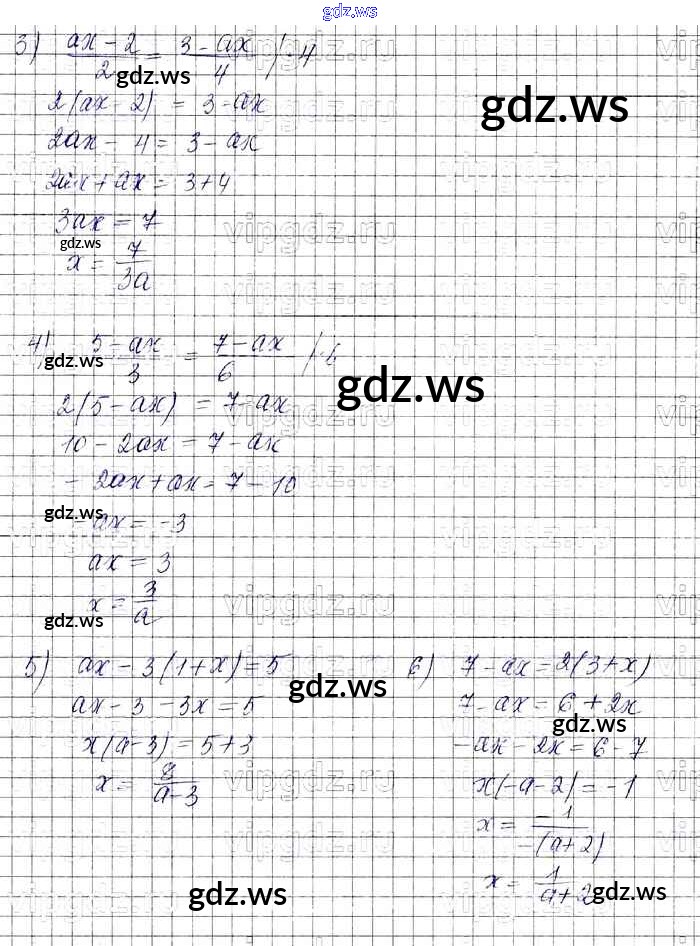 gdz.ws
3) (ax-2)/2 = (3-ax)/4 /·4
gdz.ws
gdz.ws
2(ax-2) = 3-ax
2ax - 4 = 3 - ax
2ax + ax = 3+4
3ax = 7
vipgdz.ru
gdz.ws
x = 7/(3a)
4) (5-ax)/3 = (7-ax)/6
gdz.ws
gdz.ws
2(5-ax) = 7-ax
10 - 2ax = 7 - ax
- 2ax + ax = 7 - 10
gdz.ws
- ax = -3
ax = 3
x = 3/a
vipgdz.ru
gdz.ws
5) ax - 3(1+x) = 5
gdz.ws
ax - 3 - 3x = 5
x(a-3) = 5+3
x = 8/(a-3)
vipgdz.ru
6) 7 - ax = 2(3+x)
7 - ax = 6 + 2x
gdz.ws
- ax - 2x = 6 - 7
x(-a-2) = -1
x = -1/-(a+2)
x = 1/(a+2)
gdz.ws
gdz.ws